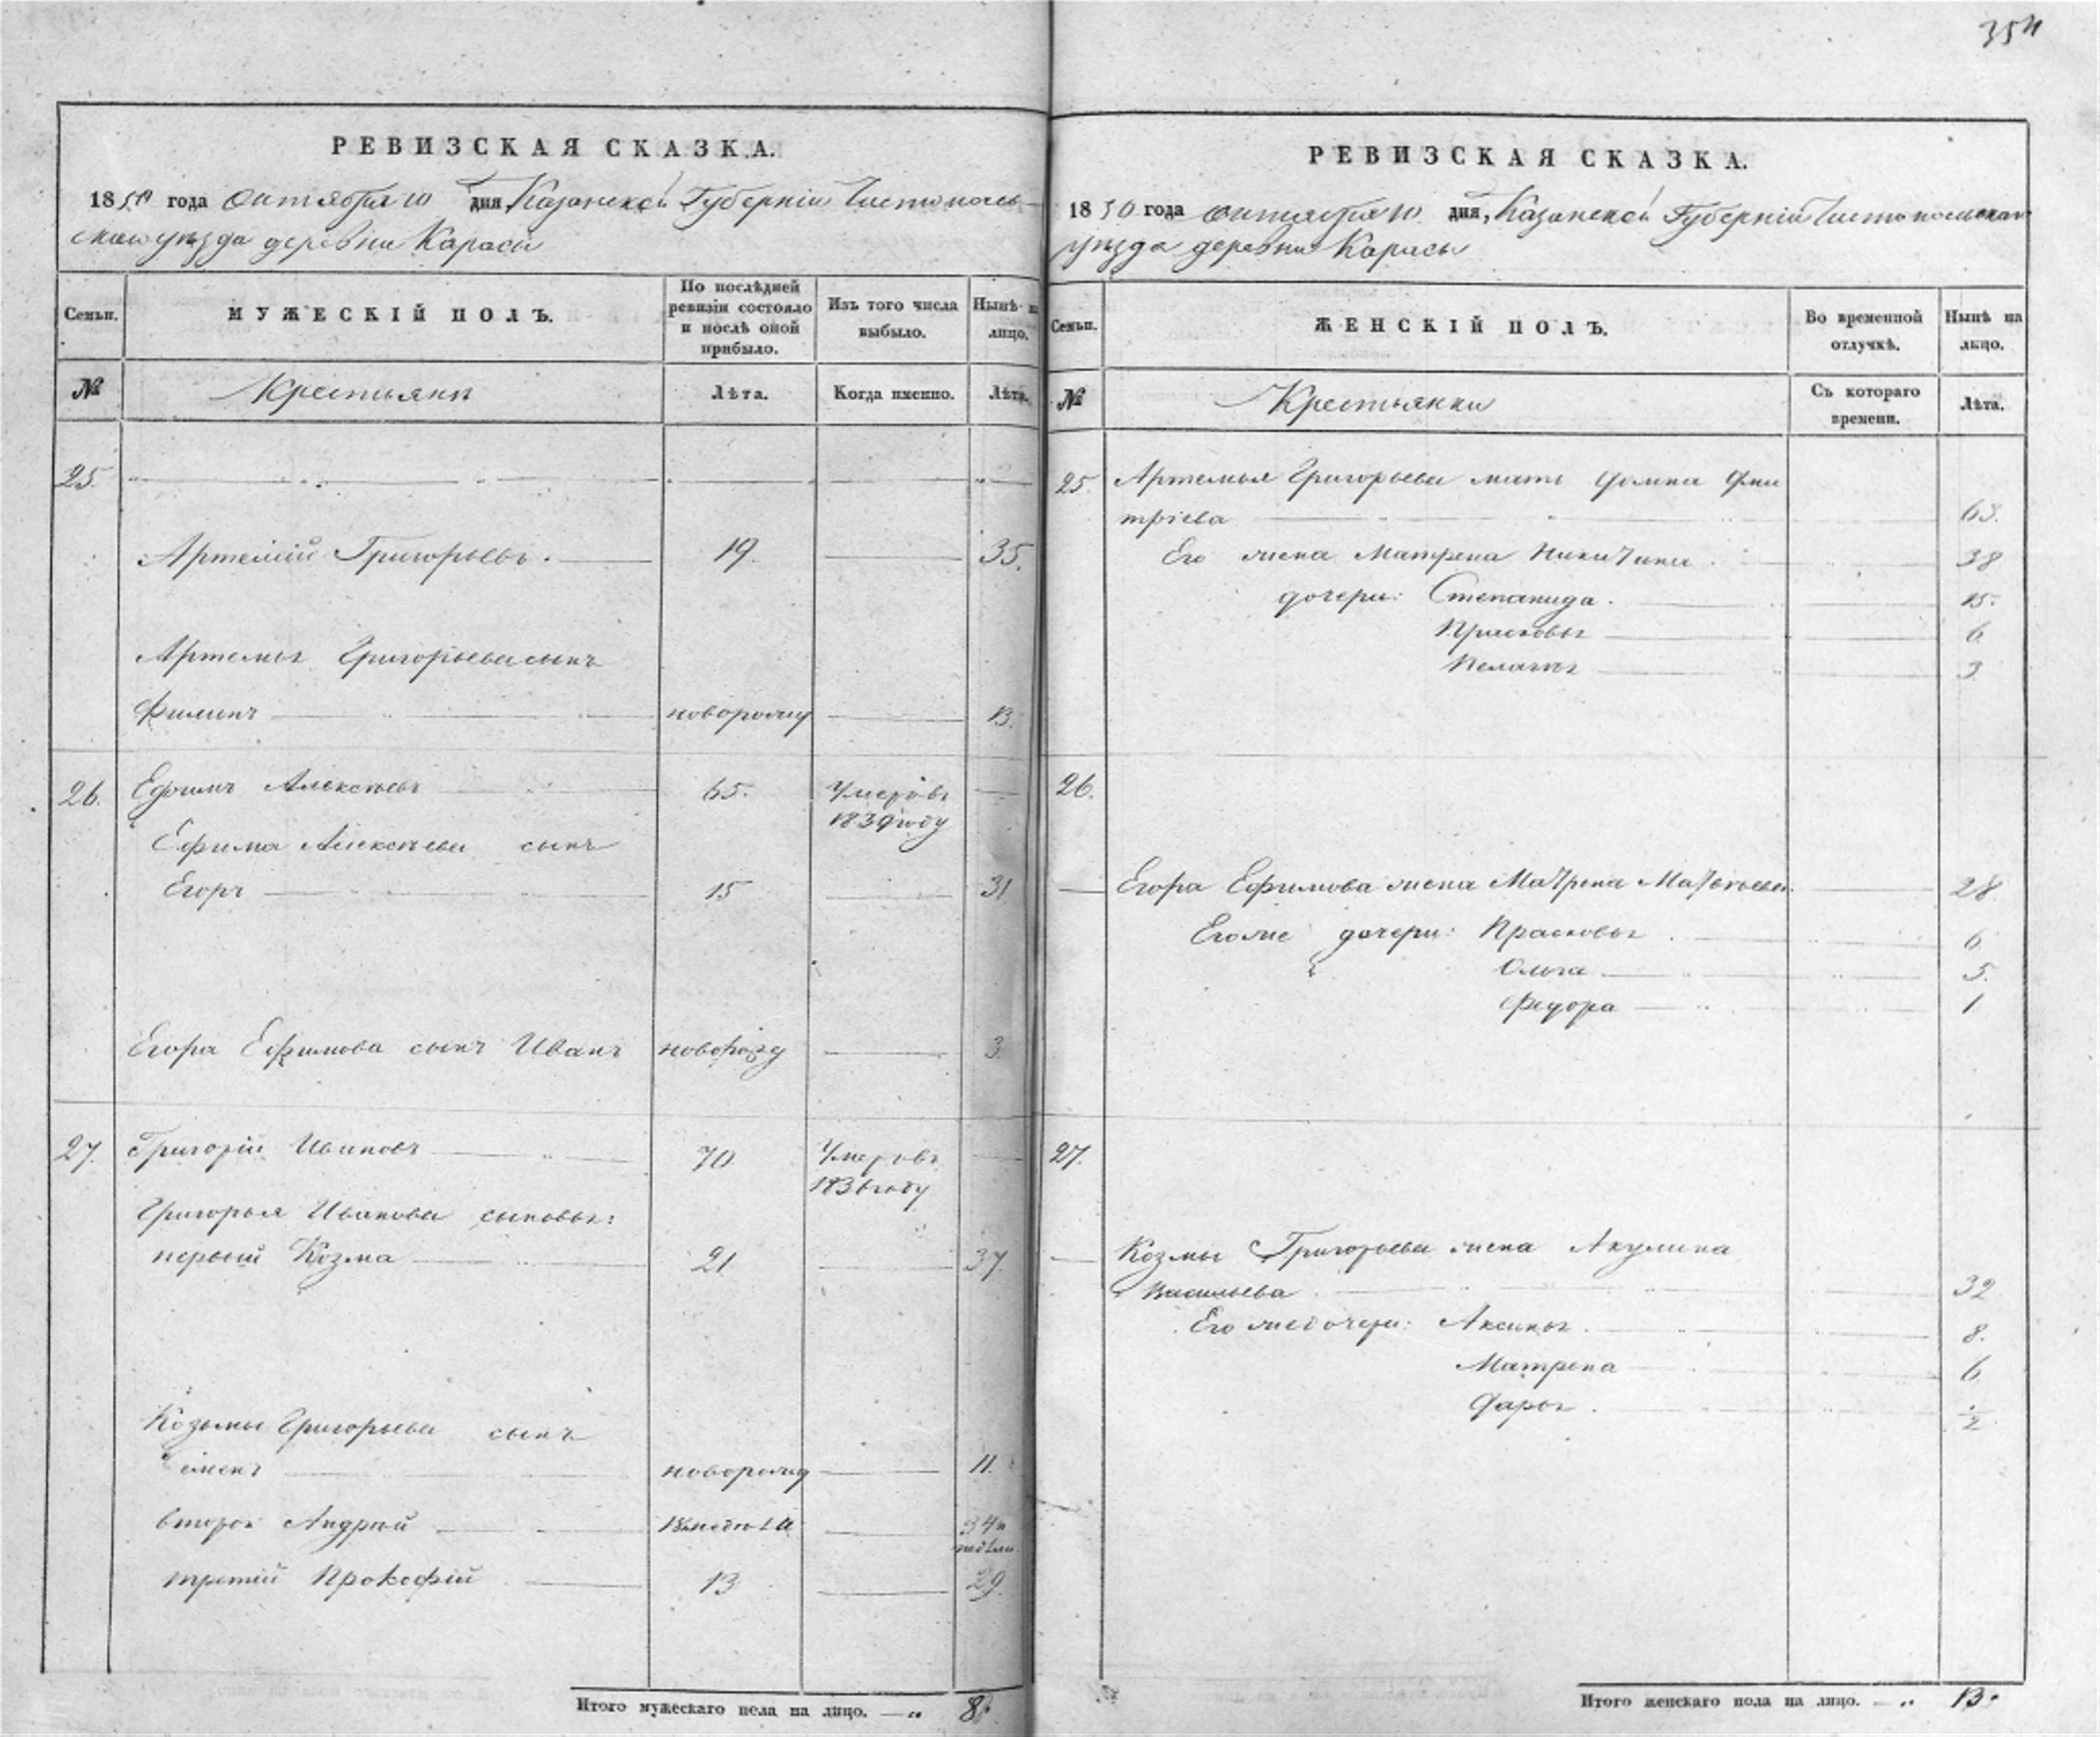 354
РЕВИЗСКАЯ СКАЗКА.
1850 года октября 10 дня, Казанской Губерніи Чистополь-
скаго уѣзда деревни Карасы
Семьи.
МУЖЕСКІЙ ПОЛЪ.
По послѣдней
ревизіи состояло
и послѣ оной
прибыло.
Изъ того числа
выбыло.
Нынѣ на
лицо.
№
Крестьяне
Лѣта.
Когда именно.
Лѣта.
25.
Артемій Григорьевъ. 19. 35.
Артемья Григорьева сынъ
Филипъ новорожд 13.
26. Ефимъ Алексѣевъ 65. Умеръ въ
1839 году
Ефима Алексѣева сынъ
Егоръ 15 31
Егора Ефимова сынъ Иванъ новорожд 3.
27. Григорій Ивановъ 70 Умеръ въ
1836 году
Григорья Иванова сыновья:
первый Козма 21 37.
Козьмы Григорьева сынъ
Семенъ новорожд 11.
второй Андрей 18 недѣль
недѣли
третій Прокофій 13 29.
Итого мужескаго пола на лицо. — „ 8.
РЕВИЗСКАЯ СКАЗКА.
1850 года октября 10 дня, Казанской Губерніи Чистопольскаго
уѣзда деревни Карасы
Семьи.
ЖЕНСКІЙ ПОЛЪ.
Во временной
отлучкѣ.
Нынѣ на
лицо.
№
Крестьянки
Съ котораго
времени.
Лѣта.
25. Артемья Григорьева мать Домна Дми
тріева 63.
Его жена Матрена Никитина 38
дочери: Степанида. 15.
Прасковья 6
Пелагея 3
26.
Егора Ефимова жена Матрена Матвѣева. 28
Его же дочери: Прасковья 6
Ольга 5.
Федора 1
27.
Козмы Григорьева жена Акулина
Васильева 32
Его же дочери: Аксинья 8.
Матрена 6
Дарья.
Итого женскаго пола на лицо. — „ 13.